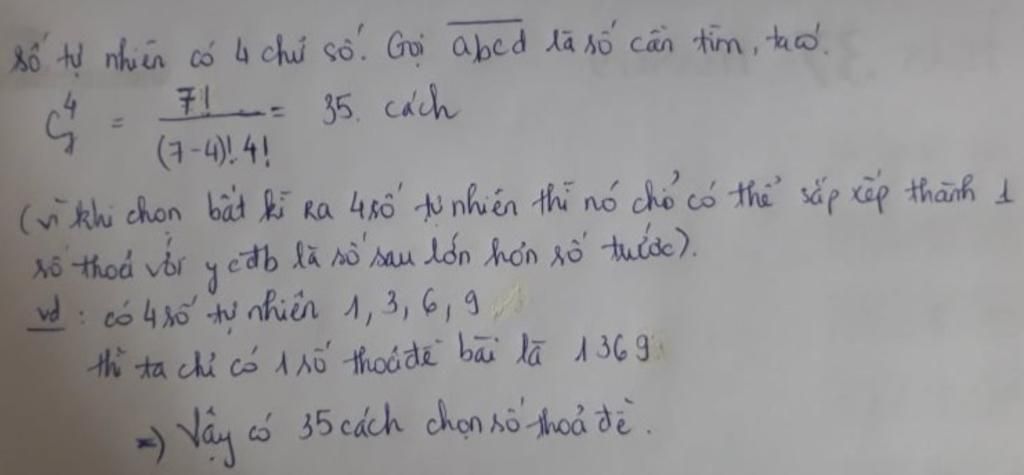 số tự nhiên có 4 chữ số. Gọi abcd là số cần tìm, ta có.
C₇⁴ = 7! / (7-4)!.4! = 35. cách
(vì khi chọn bất kì ra 4 số tự nhiên thì nó chỉ có thể sắp xếp thành 1
số thoả với ycđb là số sau lớn hơn số trước).
vd : có 4 số tự nhiên 1, 3, 6, 9
thì ta chỉ có 1 số thoả đề bài là 1369
=) Vậy có 35 cách chọn số thoả đề.